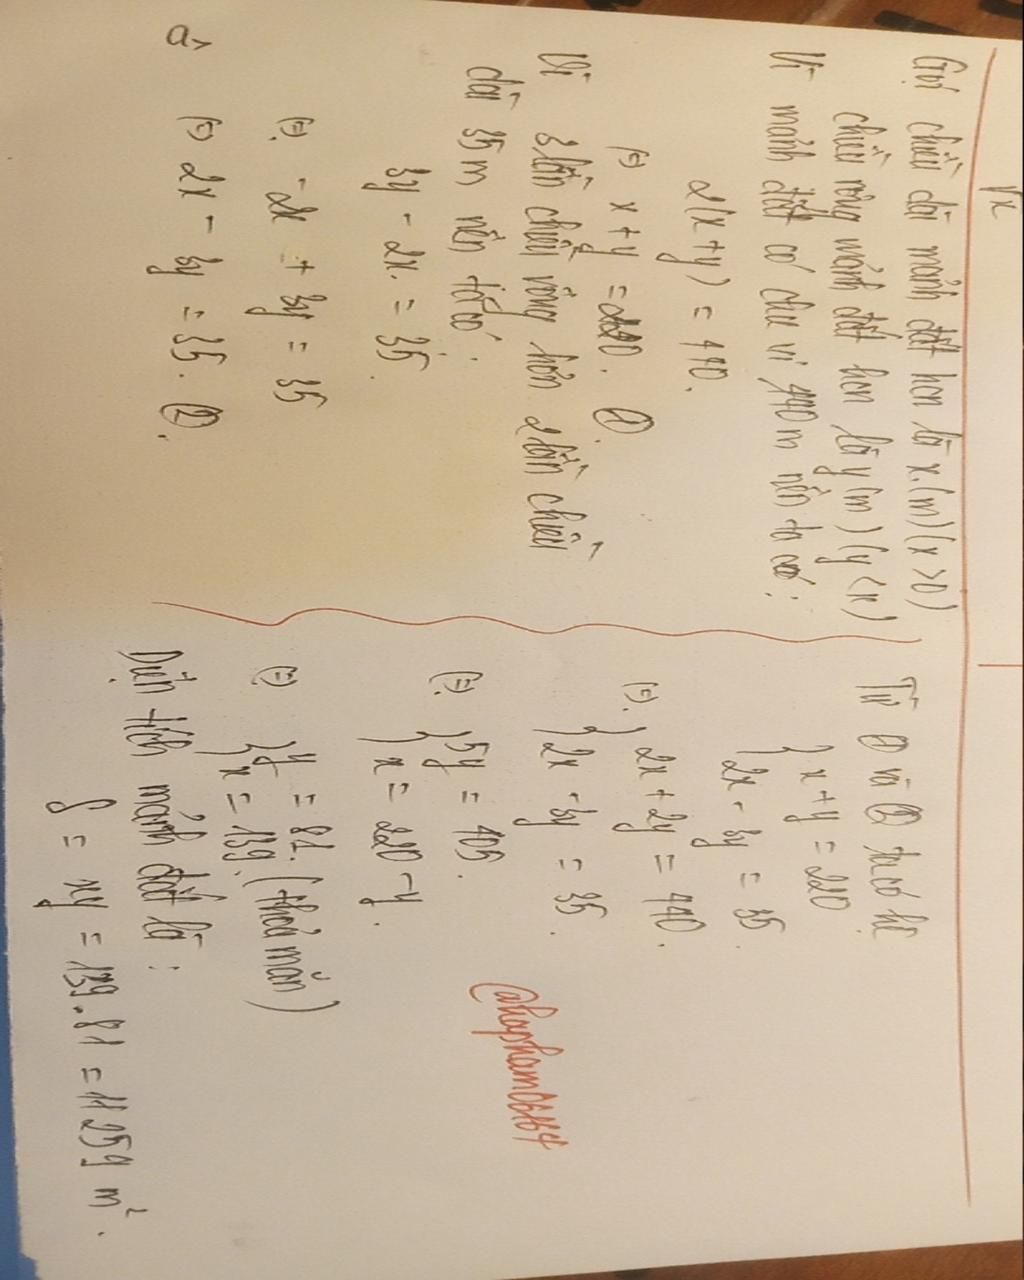 Gọi chiều dài mảnh đất hcn là x (m) (x>0)
chiều rộng mảnh đất hcn là y (m) (y<x)
Vì mảnh đất có chu vi 440m nên ta có:
2(x+y) = 440.
(=) x+y = 220. ①.
Vì 3 lần chiều rộng hơn 2 lần chiều
dài 35 m nên ta có:
3y - 2x = 35.
(=). -2x + 3y = 35
(=) 2x - 3y = 35. ②.
Từ ① và ② ta có hệ
{ x+y = 220
{ 2x - 3y = 35.
(=). { 2x + 2y = 440.
{ 2x - 3y = 35.
(=). { 5y = 405.
{ x = 220 - y.
(=). { y = 81. (thỏa mãn)
{ x = 139.
Diện tích mảnh đất là:
S = xy = 139.81 = 11259 m².
@hapham06164